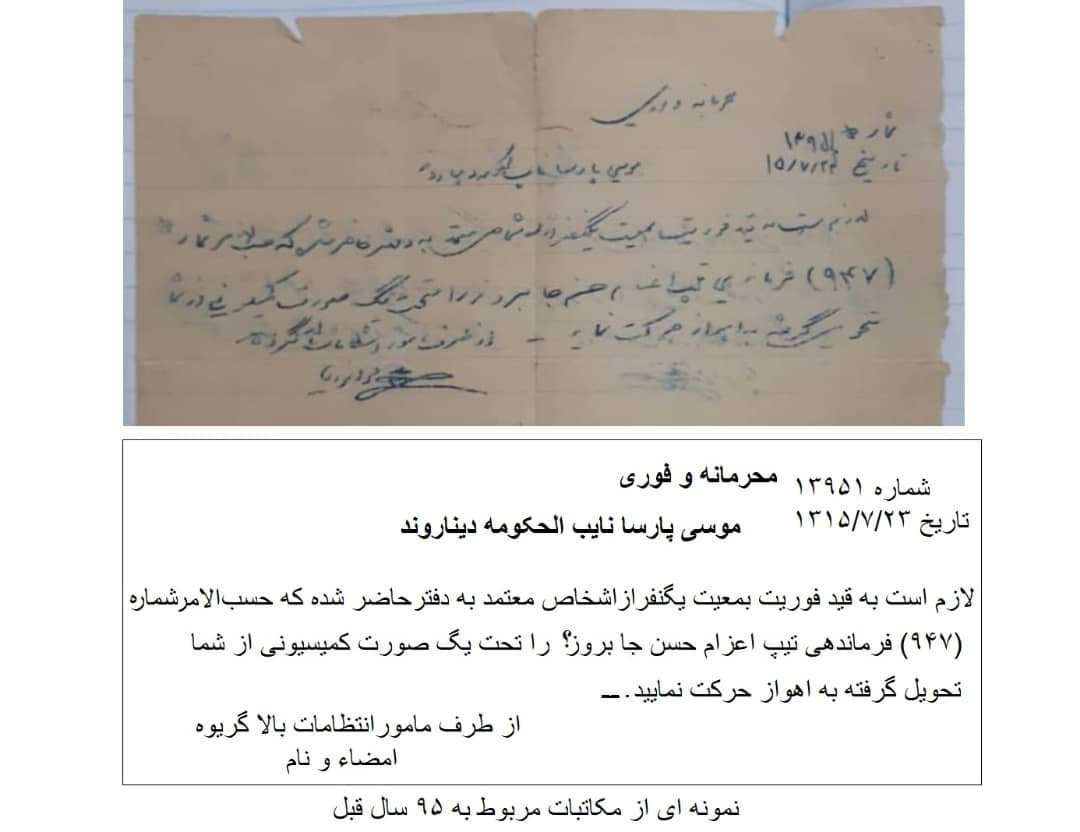 محرمانه و فوری
شماره ۱۳۹۵۱
تاریخ ۱۵/۷/۲۳
موسی پارسا نایب الحکومه دیناروند
لازم است به قید فوریت بمعیت یکنفر از اشخاص معتمد به دفتر حاضر شده که حسب الامر شماره
(۹۴۷) فرماندهی تیپ حسن جا را تحت یک صورت کمیسیونی از شما
تحویل گرفته به اهواز حرکت نمایید _
از طرف مامور انتظامات بالاگریوه
محرمانه و فوری
شماره ۱۳۹۵۱
تاریخ ۱۳۱۵/۷/۲۳
موسی پارسا نایب الحکومه دیناروند
لازم است به قید فوریت بمعیت یگنفرازاشخاص معتمد به دفترحاضر شده که حسب‌الامرشماره
(۹۴۷) فرماندهی تیپ اعزام حسن جا بروز؟ را تحت یگ صورت کمیسیونی از شما
تحویل گرفته به اهواز حرکت نمایید. ــ
از طرف مامورانتظامات بالا گریوه
امضاء و نام
نمونه ای از مکاتبات مربوط به ۹۵ سال قبل